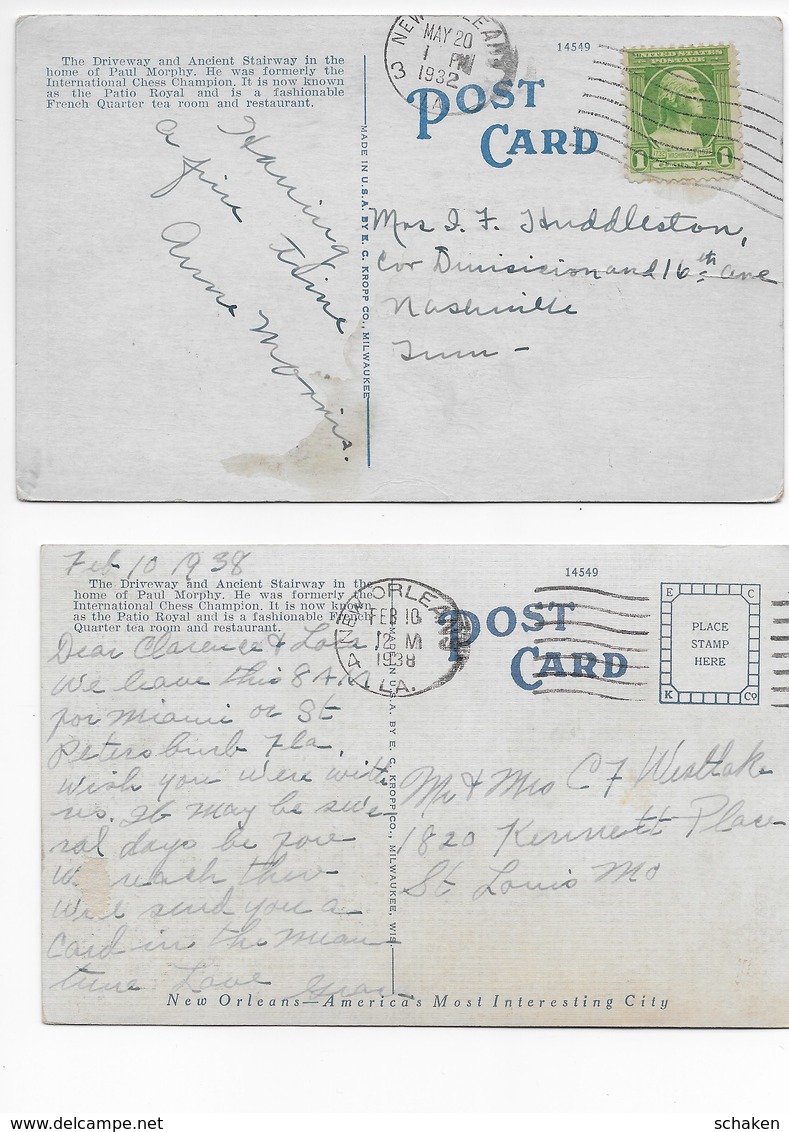 The Driveway and Ancient Stairway in the
home of Paul Morphy. He was formerly the
International Chess Champion. It is now known
as the Patio Royal and is a fashionable
French Quarter tea room and restaurant.
Having
a fine time
Anne Morris.
MADE IN U.S.A. BY E. C. KROPP CO., MILWAUKEE
NEW ORLEANS
MAY 20
1 PM
1932
LA
3
14549
POST
CARD
UNITED STATES
POSTAGE
1732 WASHINGTON 1932
1 1
Mrs I. F. Huddleston,
Cor Divisicion and 16th ave
Nashville
Tenn -
Feb 10 1938
The Driveway and Ancient Stairway in the
home of Paul Morphy. He was formerly the
International Chess Champion. It is now known
as the Patio Royal and is a fashionable French
Quarter tea room and restaurant.
Dear Clarence &
We leave this 8 A.M.
for Miami or St
Petersburb Fla.
Wish you were with
us. It may be seve
ral days be fore
We reach there
Will send you a
Card in the mean
time Love
MADE IN U.S.A. BY E. C. KROPP CO., MILWAUKEE, WIS.
NEW ORLEANS
FEB 10
12 M
1938
LA.
4
14549
POST
CARD
E C
PLACE
STAMP
HERE
K Co
Mr & Mrs C F Westlake
1820 Kennett Place
St Louis Mo
New Orleans—America's Most Interesting City
schaken